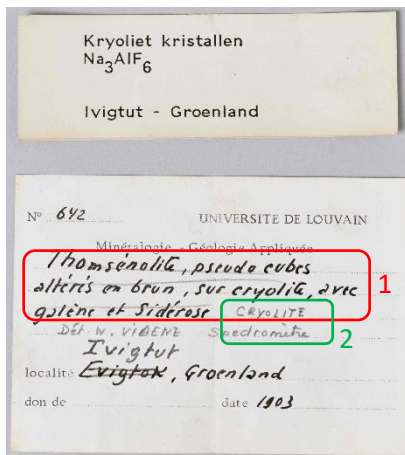 Kryoliet kristallen
Na3AlF6
Ivigtut - Groenland
N° 642 UNIVERSITE DE LOUVAIN
Minéralogie - Géologie Appliquée
Thomsénolite, pseudo cubes
altérés en brun, sur cryolite, avec
galène et Sidérose CRYOLITE
Dét W. Spectromètre
Ivigtut
localité Evigtok, Groenland
don de date 1903
1
2